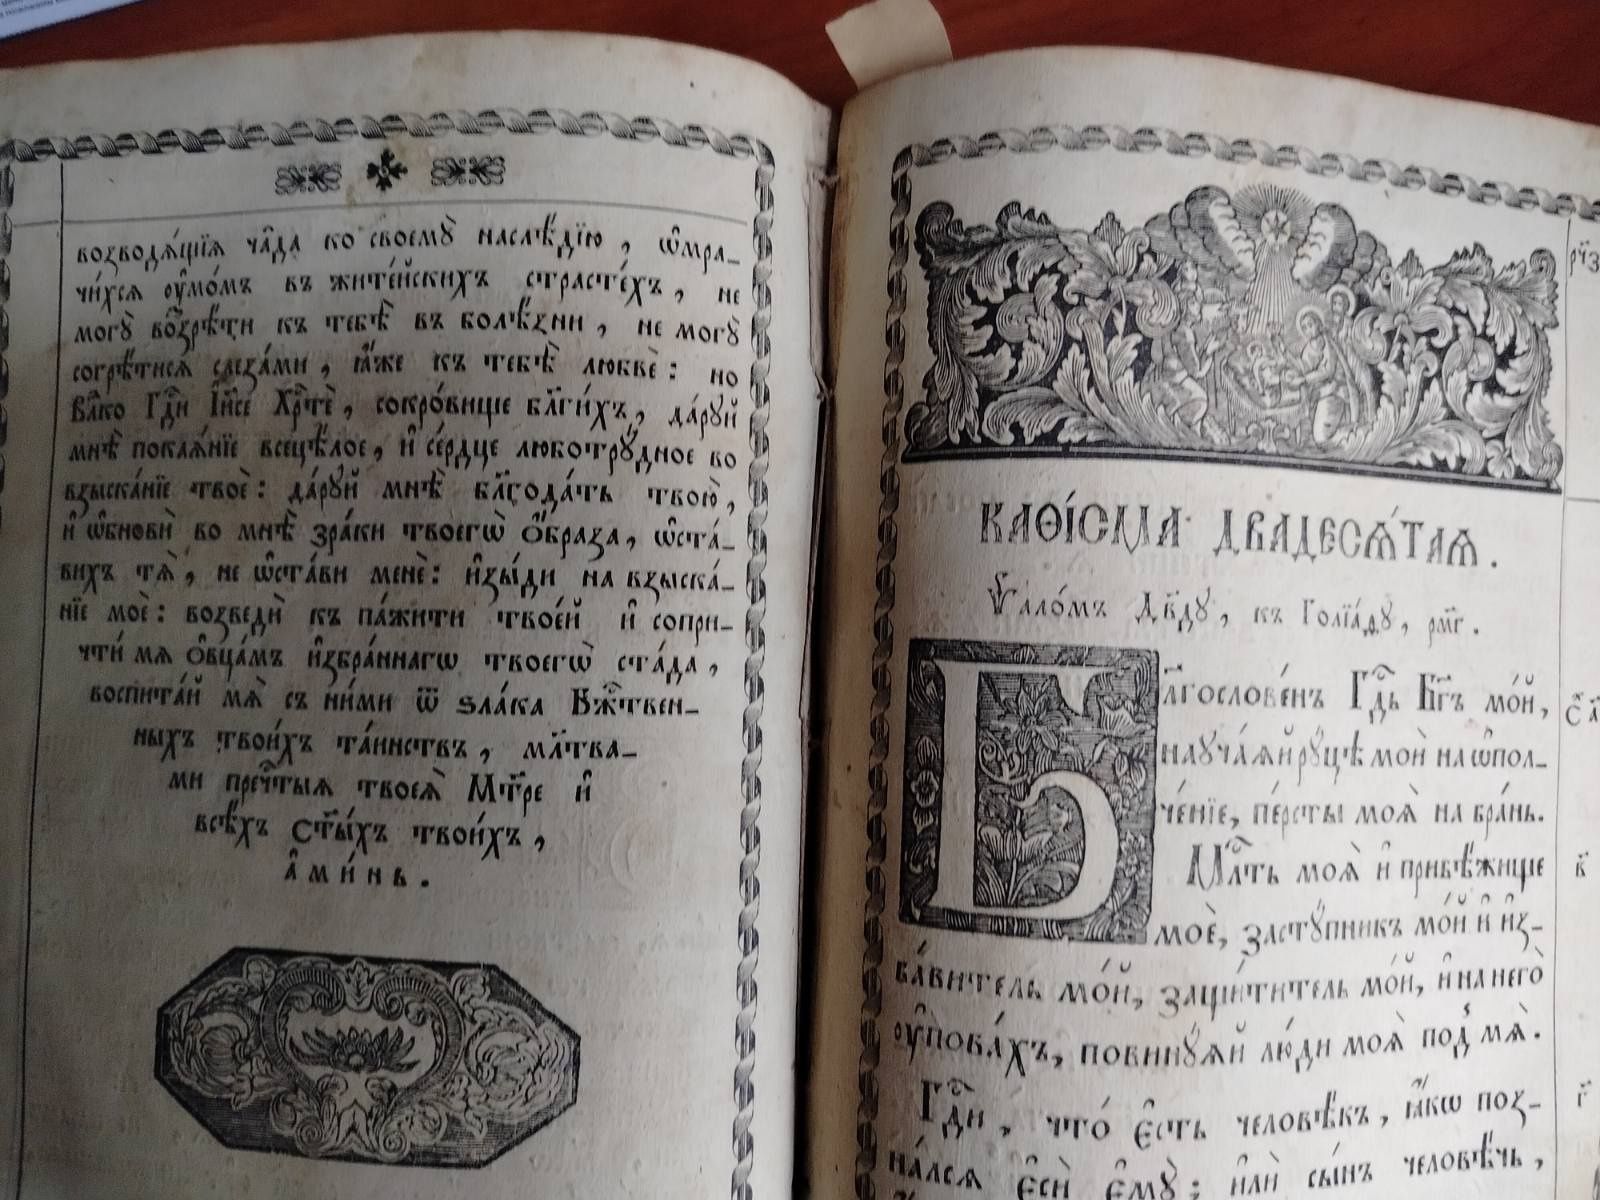 возводѧ́щїѧ ча̑да ко своемꙋ̀ наслѣ́дїю, ѡ҆мра-
чи́хсѧ ᲂу҆мо́мъ въ жите́йскихъ страсте́хъ, не
могꙋ̀ воззрѣ́ти къ тебѣ̀ въ болѣ́зни, не могꙋ̀
согрѣ́тисѧ слеза́ми, ꙗ҆̀же къ тебѣ̀ любвѐ: но
Влⷣко Гдⷭ҇и І҆и҃се Хрⷭ҇тѐ, сокро́вище бл҃ги́хъ, да́рꙋй
мнѣ̀ покаѧ́нїе всецѣ́лое, и҆ се́рдце люботрꙋ́дное во
взыска́нїе твоѐ: да́рꙋй мнѣ̀ бл҃года́ть твою̀,
и҆ ѡ҆бновѝ во мнѣ̀ зра́ки твоегѡ̀ ѻ҆́браза, ѡ҆ста́-
вихъ тѧ̀, не ѡ҆ста́ви менѐ: и҆зы́ди на взыска́-
нїе моѐ: возведѝ къ па́жити твое́й и҆ сопри-
чти́ мѧ ѻ҆вца́мъ и҆збра́ннагѡ твоегѡ̀ ста́да,
воспита́й мѧ̀ съ ни́ми ѿ ѕла́ка Бжⷭ҇твен-
ныхъ твои́хъ та́инствъ, мл҃тва-
ми пречⷭ҇тыѧ твоеѧ̀ Мт҃ре и҆
всѣ́хъ ст҃ы́хъ твои́хъ,
а҆ми́нь.
КАѲІ́СМА ДВАДЕСѦ́ТАѦ.
Ѱало́мъ Дв҃дꙋ, къ Голїа́дꙋ, рм҃г.
Бл҃гослове́нъ Гдⷭ҇ь Бг҃ъ мо́й,
наꙋча́ѧй рꙋ́цѣ моѝ на ѡ҆пол-
че́нїе, пе́рсты моѧ̀ на бра́нь.
Млⷭ҇ть моѧ̀ и҆ прибѣ́жище
моѐ, застꙋ́пникъ мо́й и҆ и҆з-
ба́витель мо́й, защи́титель мо́й, и҆ на него̀
ᲂу҆пова́хъ, повинꙋ́ѧй лю́ди моѧ̀ под̾ мѧ̀.
Гдⷭ҇и, что́ є҆сть человѣ́къ, ꙗ҆́кѡ поз-
на́лсѧ є҆сѝ є҆мꙋ̀; и҆лѝ сы́нъ человѣ́чь,
в҃
г҃